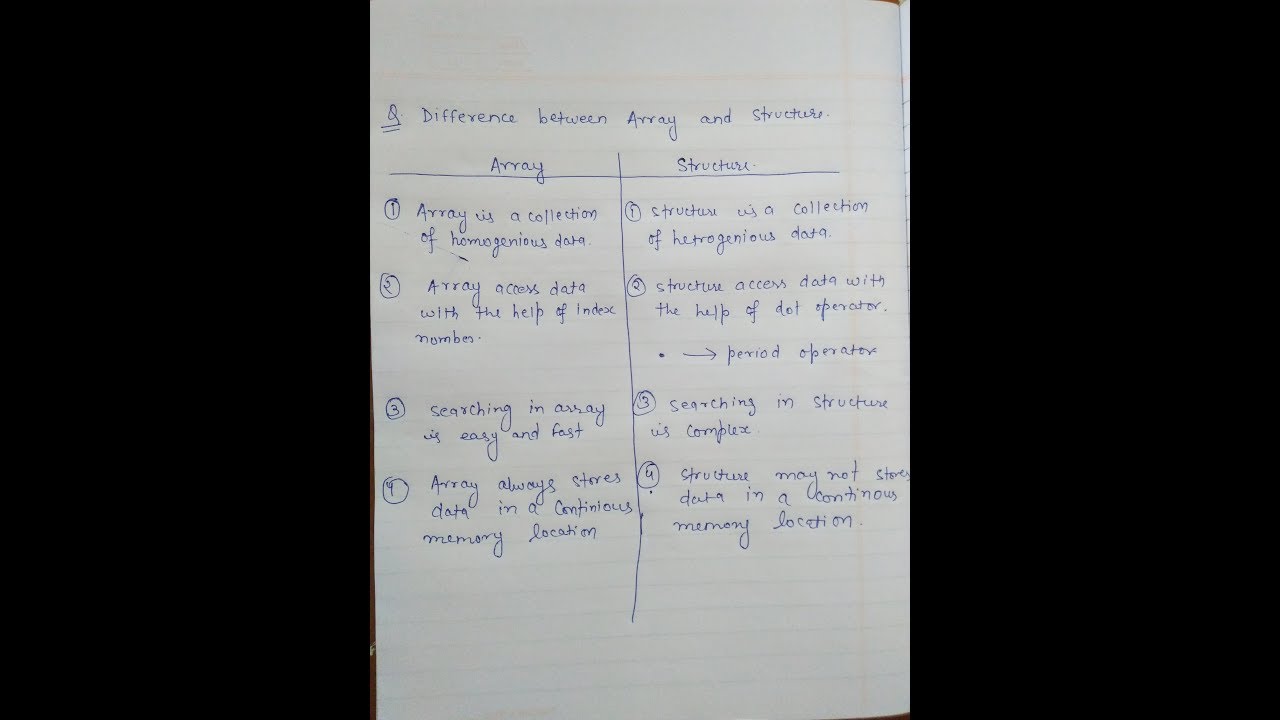 Q. Difference between Array and Structure.
Array
Structure.
① Array is a collection
of homogenious data.
② Array access data
with the help of index
number.
③ searching in array
is easy and fast
④ Array always stores
data in a continious
memory location
① structure is a collection
of hetrogenious data.
② structure access data with
the help of dot operator.
. → period operator
③ searching in structure
is complex.
④ structure may not stores
data in a continous
memory location.